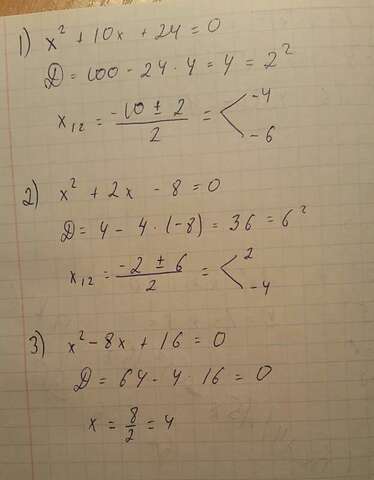 1) x² + 10x + 24 = 0
D = 100 - 24 · 4 = 4 = 2²
x₁₂ = (-10 ± 2)/2 = < -4
-6
2) x² + 2x - 8 = 0
D = 4 - 4 · (-8) = 36 = 6²
x₁₂ = (-2 ± 6)/2 = < 2
-4
3) x² - 8x + 16 = 0
D = 64 - 4 · 16 = 0
x = 8/2 = 4